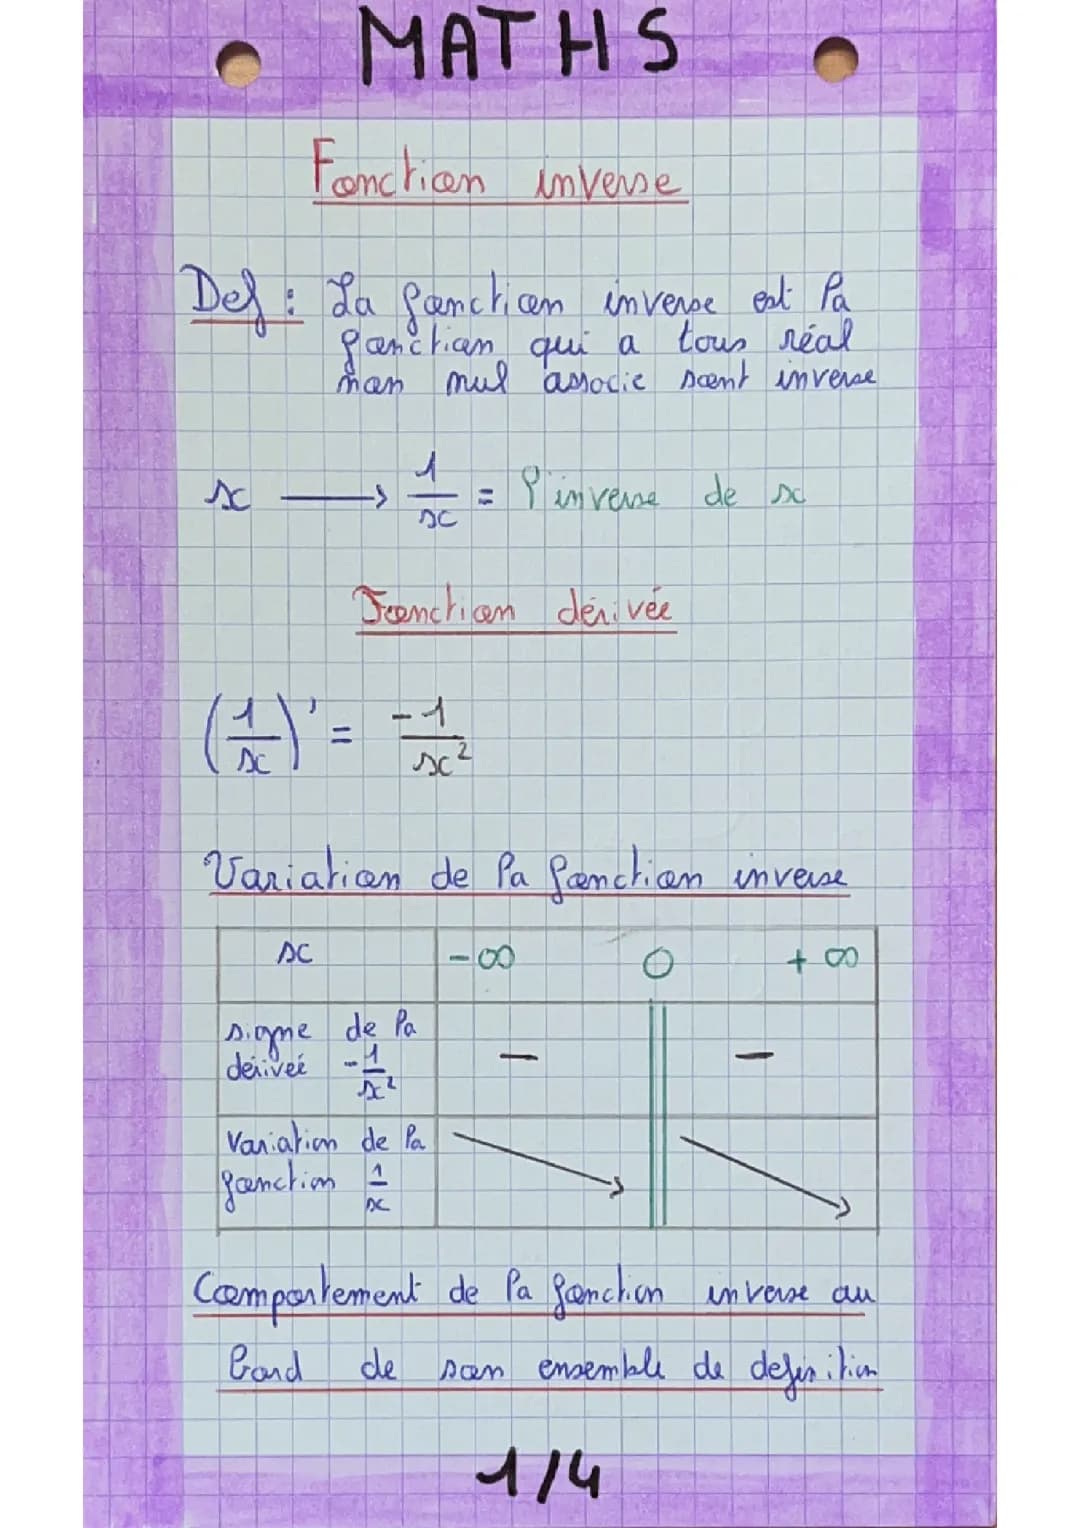 MATHS
Fonction inverse
Def : La fonction inverse est la
fonction qui a tous réal
non nul associe sont inverse
x ⟶ 1/x = l'inverse de x
Fonction dérivée
(1/x)' = -1/x²
Variation de la fonction inverse
x -∞ 0 + ∞
signe de la
dérivée -1/x² - -
Variation de la
fonction 1/x
Comportement de la fonction inverse au
bord de son ensemble de definition
1/4